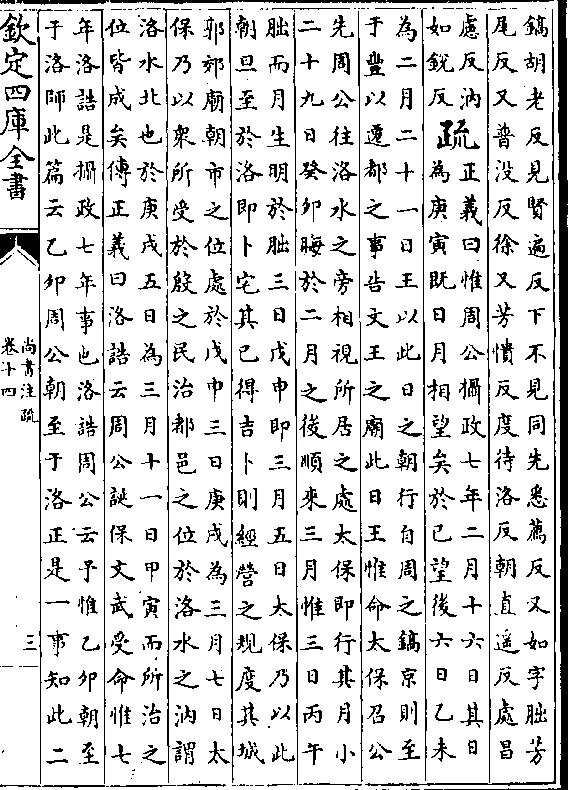 鎬胡老反見賢遍反下不見同先悉薦反又如字朏芳
尾反又普没反徐又芳憒反度待洛反朝直遥反處昌
慮反汭
如銳反
疏
正義曰惟周公攝政七年二月十六日其日
為庚寅既日月相望矣於已望後六日乙未
為二月二十一日王以此日之朝行自周之鎬京則至
于豐以遷都之事告文王之廟此日王惟命太保召公
先周公往洛水之旁相視所居之處太保即行其月小
二十九日癸卯晦於二月之後順來三月惟三日丙午
朏而月生明於朏三日戊申即三月五日太保乃以此
朝旦至於洛即卜宅其已得吉卜則經營之規度其城
郭郊廟朝市之位處於戊申三日庚戌為三月七日太
保乃以衆所受於殷之民治都邑之位於洛水之汭謂
洛水北也於庚戌五日為三月十一日甲寅而所治之
位皆成矣傳正義曰洛誥云周公誕保文武受命惟七
年洛誥是攝政七年事也洛誥周公云予惟乙卯朝至
于洛師此篇云乙卯周公朝至于洛正是一事知此二
欽定四庫全書
尚書注疏
卷十四
三